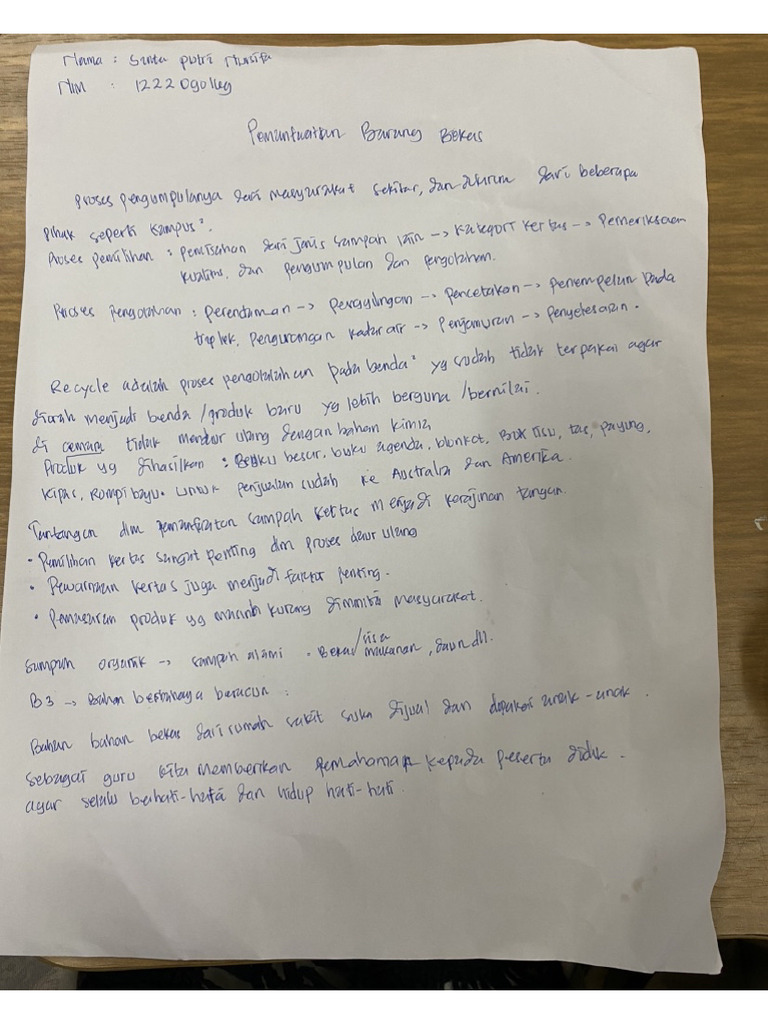 Nama : Sinta putri Nursifa
NIM :
Pemanfaatan Barang Bekas
Proses pengumpulanya dari masyarakat sekitar, dan dikirim dari beberapa
pihak seperti kampus².
Proses pemilihan : pemisahan dari jenis sampah lain -> kategori kertas -> Pemeriksaan
kualitas, dan pengumpulan dan pengolahan.
Proses pengolahan : perendaman -> penggilingan -> pencetakan -> penempelan pada
triplek, pengurangan kadar air -> penjemuran -> penyelesaian.
Recycle adalah proses pengolalahan pada benda² yg sudah tidak terpakai agar
diolah menjadi benda / produk baru yg lebih berguna / bernilai.
di tidak mendur ulang dengan bahan kimia
Produk yg dihasilkan : Buku besar, buku agenda, bloknot, Box tisu, tas, payung,
kipas, Rompi bayu. untuk penjualan sudah ke Australia dan Amerika.
Tantangan dlm pemanfaatan sampah kertas menjadi kerajinan tangan.
• Pemilihan kertas sangat penting dlm proses daur ulang
• Pewarnaan kertas juga menjadi faktor penting.
• Pemasaran produk yg masih kurang diminati masyarakat.
Sampah organik -> sampah alami : Bekas / sisa makanan, daun dll.
B3 -> Bahan berbahaya beracun :
Bahan bahan bekas dari rumah sakit suka dijual dan dipakai anak-anak.
Sebagai guru kita memberikan pemahaman kepada peserta didik.
agar selalu berhati-hati dan hidup hati-hati.